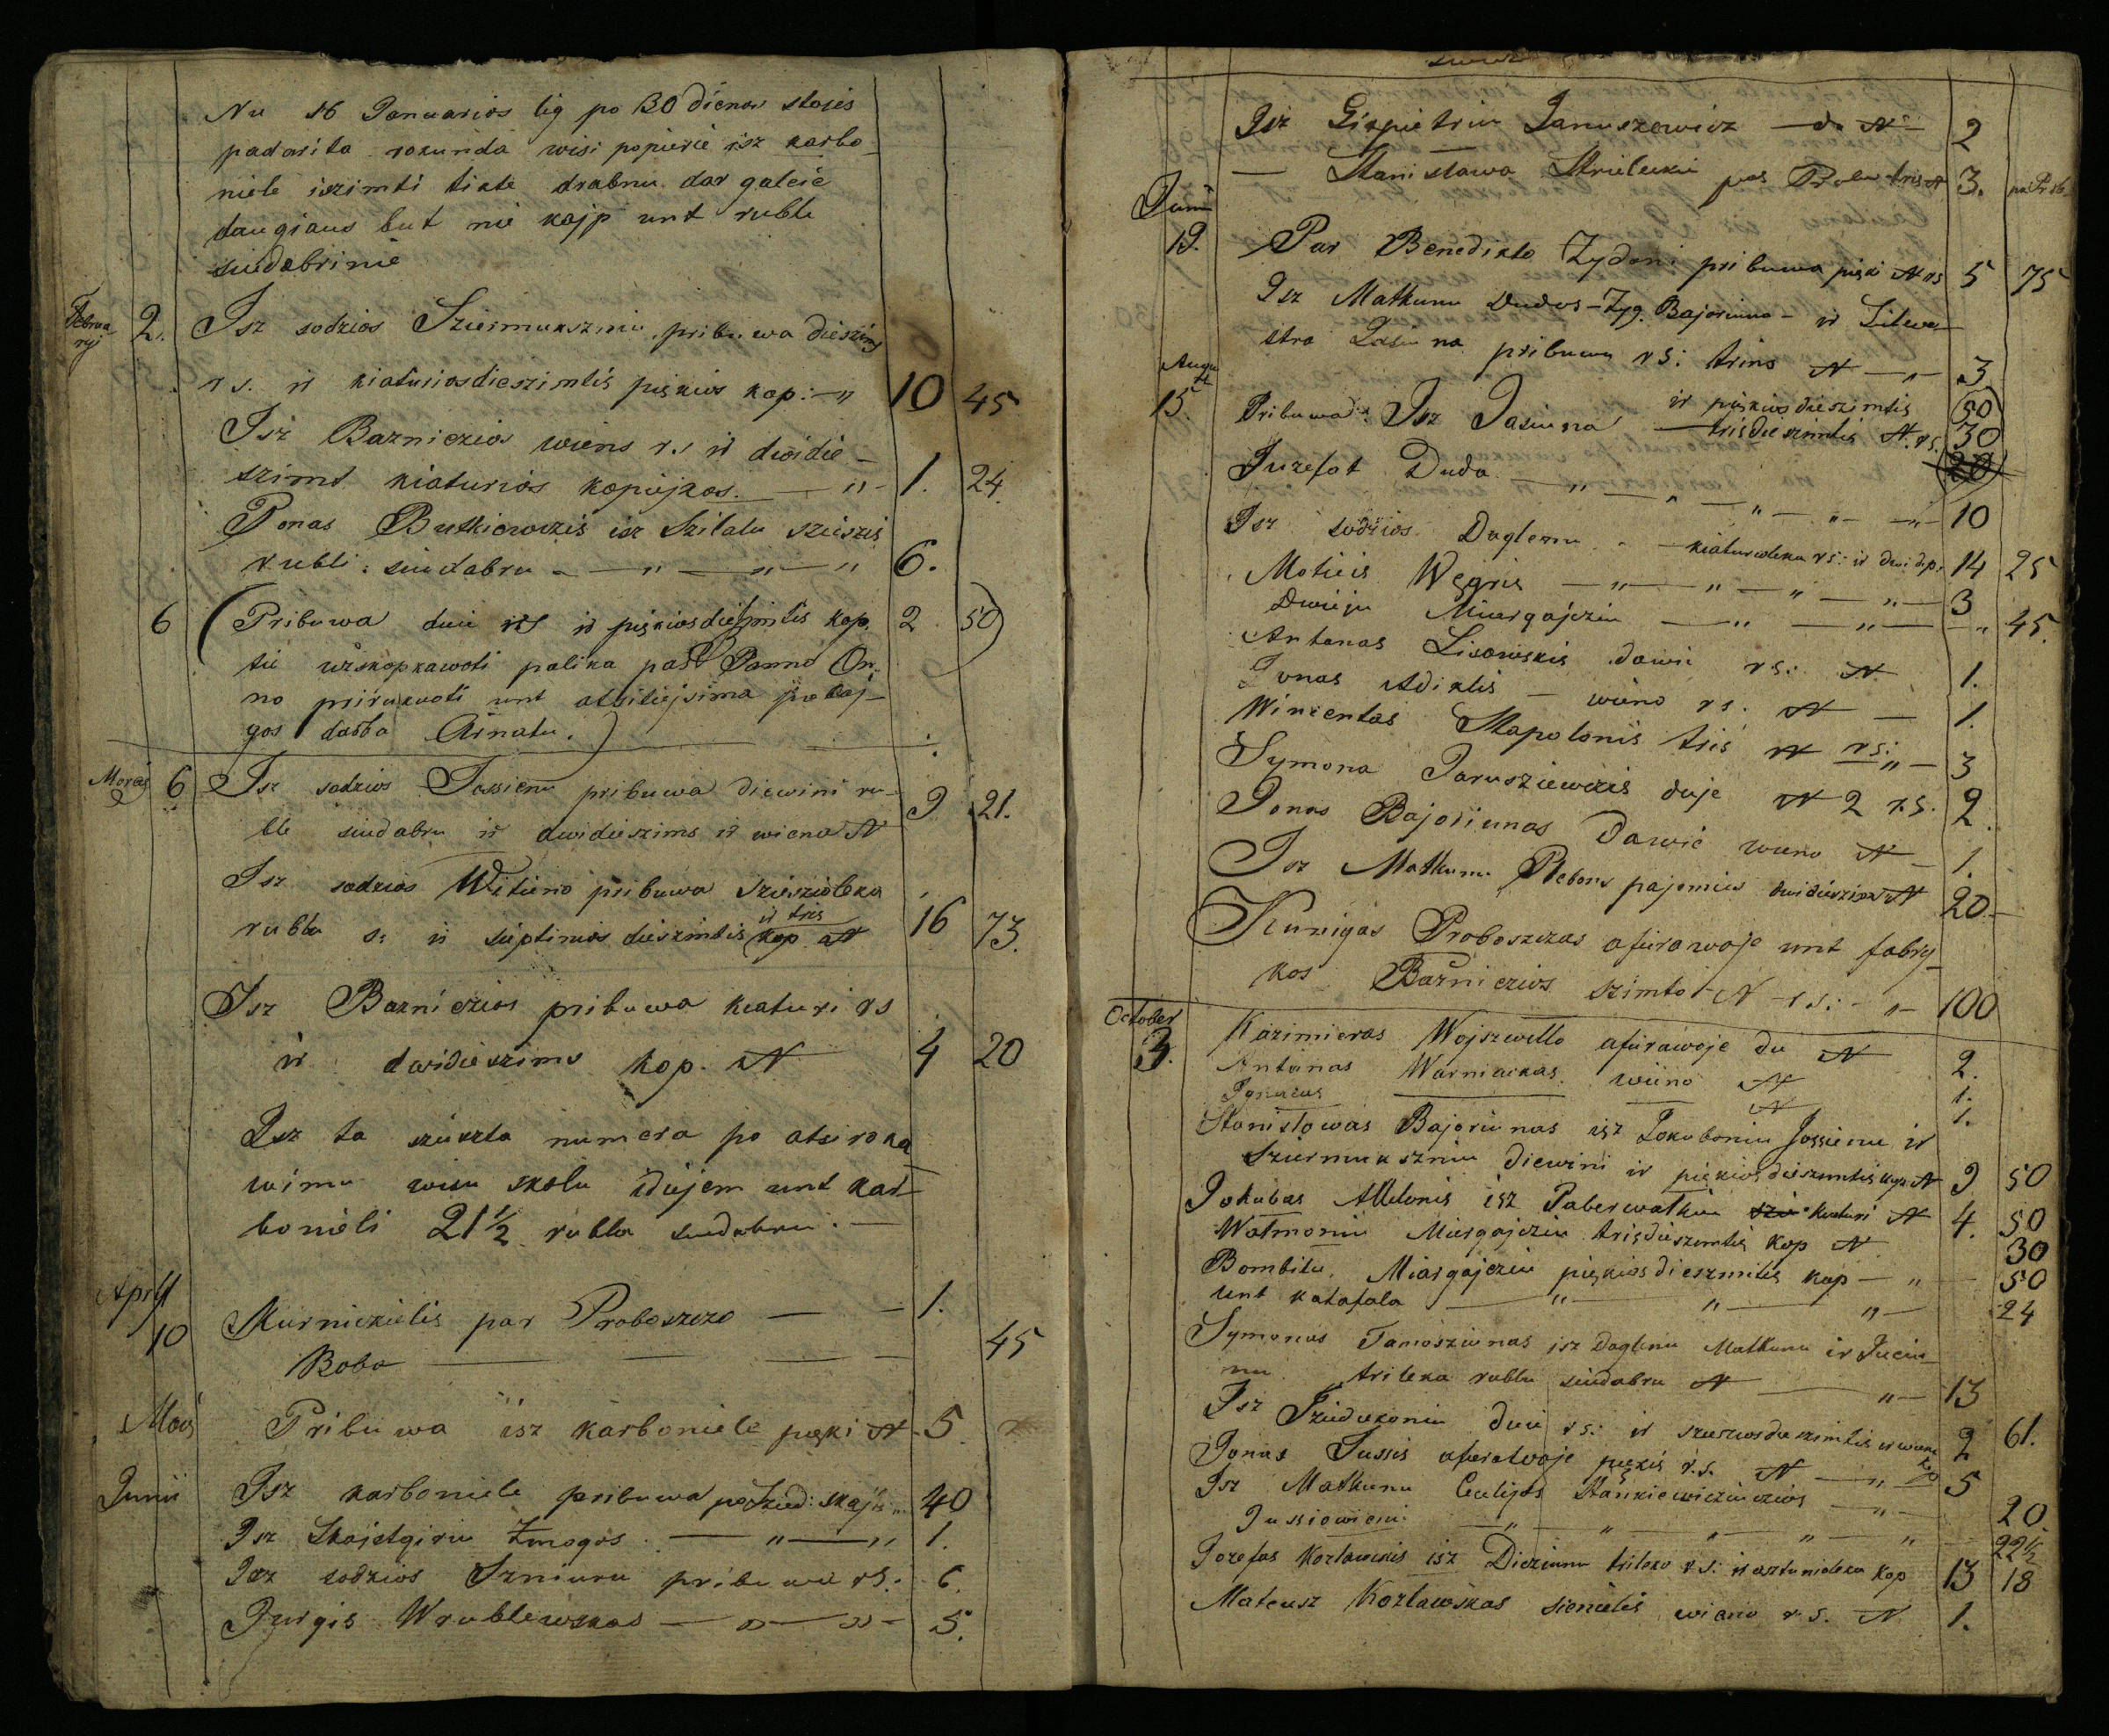 Nu 16 Januarios lig po 30 dienos stojes
padarita rokunda wisi popierie isz karbo-
niele iszimti tiktt drabnu dar galeie
daugiaus but nie kajp unt rublu
siudabrinie
Februa-
ryj 2. Isz sodzios Sziermukszniu pribuwa dieszims
r s. ir kiaturiosdieszimtis piękios kop: — „ 10 45
Isz Bazniczios wiens r.s ir dwidie-
szimt kiaturios kopiejkas. — „ - 1. 24.
Ponas Butkiewiczis isz Szilalu szieszis
rubli: siudabru - — „ — „ — „ 6.
6 (Pribuwa dui rs ir piękiosdieszimtis kop. 2. 50)
tie użkopkawoti palika pas Panno On-
no prirukuoti unt
gos darba Arnatu.)
Morcij 6 Isz sodzios Jossienu pribuwa diewini ru- 9. 21.
ble siudabru ir dwidieszims ir wiena N
Isz sodzios Witieno pribuwa Szieszioleka
ir tris
rublu s: ir sieptinios dieszimtis kop. N 16 73.
Isz Bazniczios pribuwa kiaturi rs
ir dwidieszims kop. N 4 20
Isz ta sziuszta numera po atsiroka
wimu wisu skolu idiejem unt kar-
bonieli 21 1/2 rublu siudabru. —
Apryl
10 Murniczielis par Proboszczo — — 1.
Boba — — — — 45
Moij Pribuwa isz karboniele pięki N - 5
Junii Isz karboniele pribuwa po Szwed: skajtu „ 40
Isz Skajdgiriu Żmogos. — „ — „ 1.
Isz sodzios Szniuru pribuwa rs: 6.
Jurgis Wrublewskas — „ — „ - 5.
Isz Gizpietriu Januszewicz — do N - 2
— Stanislawa Strieluku pas Prabu tris N 3.
Junii
19. Par Benedikto Żydoni pribuwa pięki N rs 5 75
Isz Matkunu Dudos - Żyg. Bajoriuno - ir Silwe-
stra Lasiuna pribuwa rs: trins N — „ — 3
Augu
st
15. Pribuwa: Isz Jasiuna ir piękios dieszimtis (50)
trisdieszimtis N. rs. 30
Juzefot Duda. — „ — „ — „ — „ — „ — 10
Isz sodzios Daglenu - kiaturoleka rs: ir dwi d.p. 14 25
Motieis Węgris — „ — „ — „ — „ — 3
Dwieju Miargajcziu — „ — „ — „ 45.
Antanas Lisowskis dawie rs: N 1.
Jonas Adiklis — wieno rs. N — 1.
Wincentas Stapolonis tris N rs: „ — 3
Symona Jaruszieiwiczis duje N 2 r.s. 2.
Jonas Bajoriunas Dawie wieno N - 1.
Isz Matkunu Plebons pajemies dwidieszims N 20 —
Kunigas Proboszczas afierawoje unt fabry-
kos Bażniczios szimto - N - r.s: - „ — 100
October
3. Kazimieras Wojszwillo afierawoje du N 2.
Antanas Warniackas wieno N 1.
Ignacus — — N 1.
Stanislowas Bajoriunas isz Jokuboniu Jossienu ir
Sziermukszniu diewini ir piękiosdieszimtis kop. N 9 50
Jokubas Aldonis isz Paberwalkiu kiaturi N 4. 50
Watmoniu Miergajcziu trisdieszimtis kop N. 30
Bombitu. Miargajcziu piękiosdieszimtis kop — „ — 50
unt katafala — „ — „ — „ — 24
Symonas Tamosziunas isz Daglenu Matkunu ir Juciu-
nu trileka rublu siudabru N — „ — 13
Isz Pziedukoniu dui rs: ir szieszesdieszimtis ir wiena kop 2 61.
Jonas Jussis afieratwoje piękis r.s. N — „ — 5
Isz Matkunu Ceulijos Stankiewicziucziós — „ — 20.
Jussiowieni — „ — „ — „ — „ — „ 22 1/2
Jozefas Kozlawskis isz Dieziunu trileko rs: ir asztunioleka kop 13 18
Mateusz Kozlawskas sienielis wieno r.s. N 1.